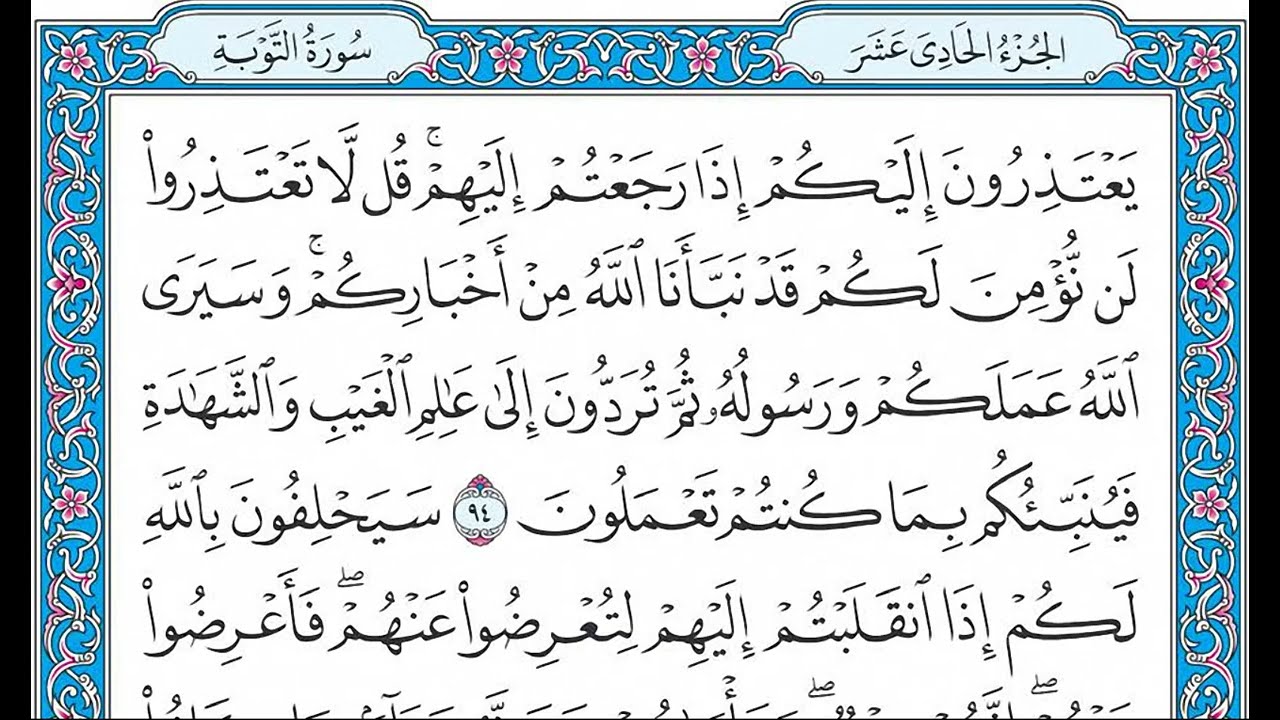 الجُزْءُ الحَادِى عَشَرَ
سُورَةُ التَّوْبَةِ
يَعْتَذِرُونَ إِلَيْكُمْ إِذَا رَجَعْتُمْ إِلَيْهِمْۚ قُل لَّا تَعْتَذِرُوا۟
لَن نُّؤْمِنَ لَكُمْ قَدْ نَبَّأَنَا ٱللَّهُ مِنْ أَخْبَارِكُمْۚ وَسَيَرَى
ٱللَّهُ عَمَلَكُمْ وَرَسُولُهُۥ ثُمَّ تُرَدُّونَ إِلَىٰ عَٰلِمِ ٱلْغَيْبِ وَٱلشَّهَٰدَةِ
فَيُنَبِّئُكُم بِمَا كُنتُمْ تَعْمَلُونَ ٩٤ سَيَحْلِفُونَ بِٱللَّهِ
لَكُمْ إِذَا ٱنقَلَبْتُمْ إِلَيْهِمْ لِتُعْرِضُوا۟ عَنْهُمْۖ فَأَعْرِضُوا۟